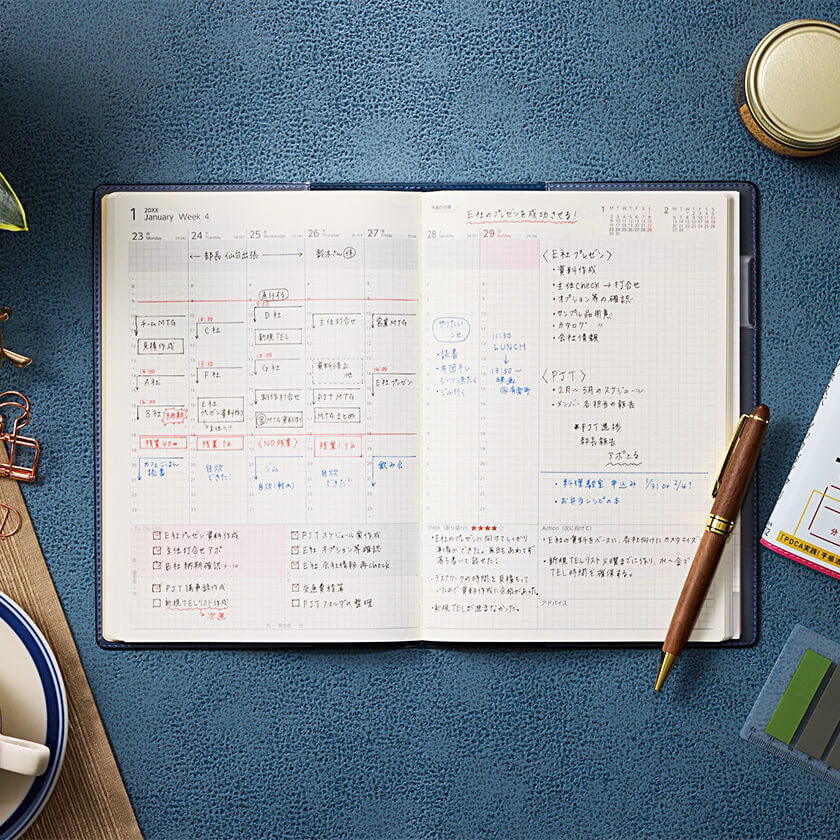 1
20XX
January Week 4
23 Monday
24 Tuesday
25 Wednesday
26 Thursday
27 Friday
← 部長 仙台出張 →
鈴木さん 休
直行する
チームMTG
見積作成
14:00
A社
16:00
B社
残業40m
カフェごはん
読書
10:00
C社
13:30
F社
E社
プレゼン資料作り
残業1h
自炊
できた!
D社
新規TEL
13:30
G社
新作打合せ
MTG資料作り
〈NO残業〉
ジム
自炊(軽め)
主任打合せ
資料修正
他
PJT MTG
MTGまとめ
残業1.5h
自炊
できた!
営業MTG
14:00
E社プレゼン
飲み会
To Do List
E社プレゼン資料作成
主任打合せアポ
B社納期確認メール
PJT議事録作成
新規TELリスト作成
→次週
PJTスケジュール案作成
E社オプション等確認
E社会社情報再check
交通費精算
PJTフォルダの整理
今週の目標
E社のプレゼンを成功させる!
1
M T W T F S S
2
M T W T F S S
28 Saturday
29 Sunday
やりたい
こと
・読書
・布団干し
シーツ洗たく
・ジム行く
11:30
LUNCH
↓
13:30〜
映画
@有楽町
〈E社プレゼン〉
・資料作成
・主任check → 打合せ
・オプション等の確認
・サンプル品用意
・カタログ 〃
・会社情報
〈PJT〉
・2月〜3月のスケジュール
・メンバー各担当の報告
*PJT進捗
部長報告
アポとる
・料理教室 申込み 1/31 or 2/4?
・お弁当レシピの本
Check(振り返り) ★★★★☆
・E社のプレゼンに向けてしっかり
準備ができた。当日もあわてず
落ち着いて話せた!
・タスクワークの時間を見積もって
いたので資料作成に余裕があった。
・新規TELが進まなかった。
Action(次に向けて)
・E社の資料をベースに、各社向けにカスタマイズ
・新規TELリスト火曜までに作り、水〜金で
TEL時間を確保する。
アドバイス
「PDCA実践!手帳活